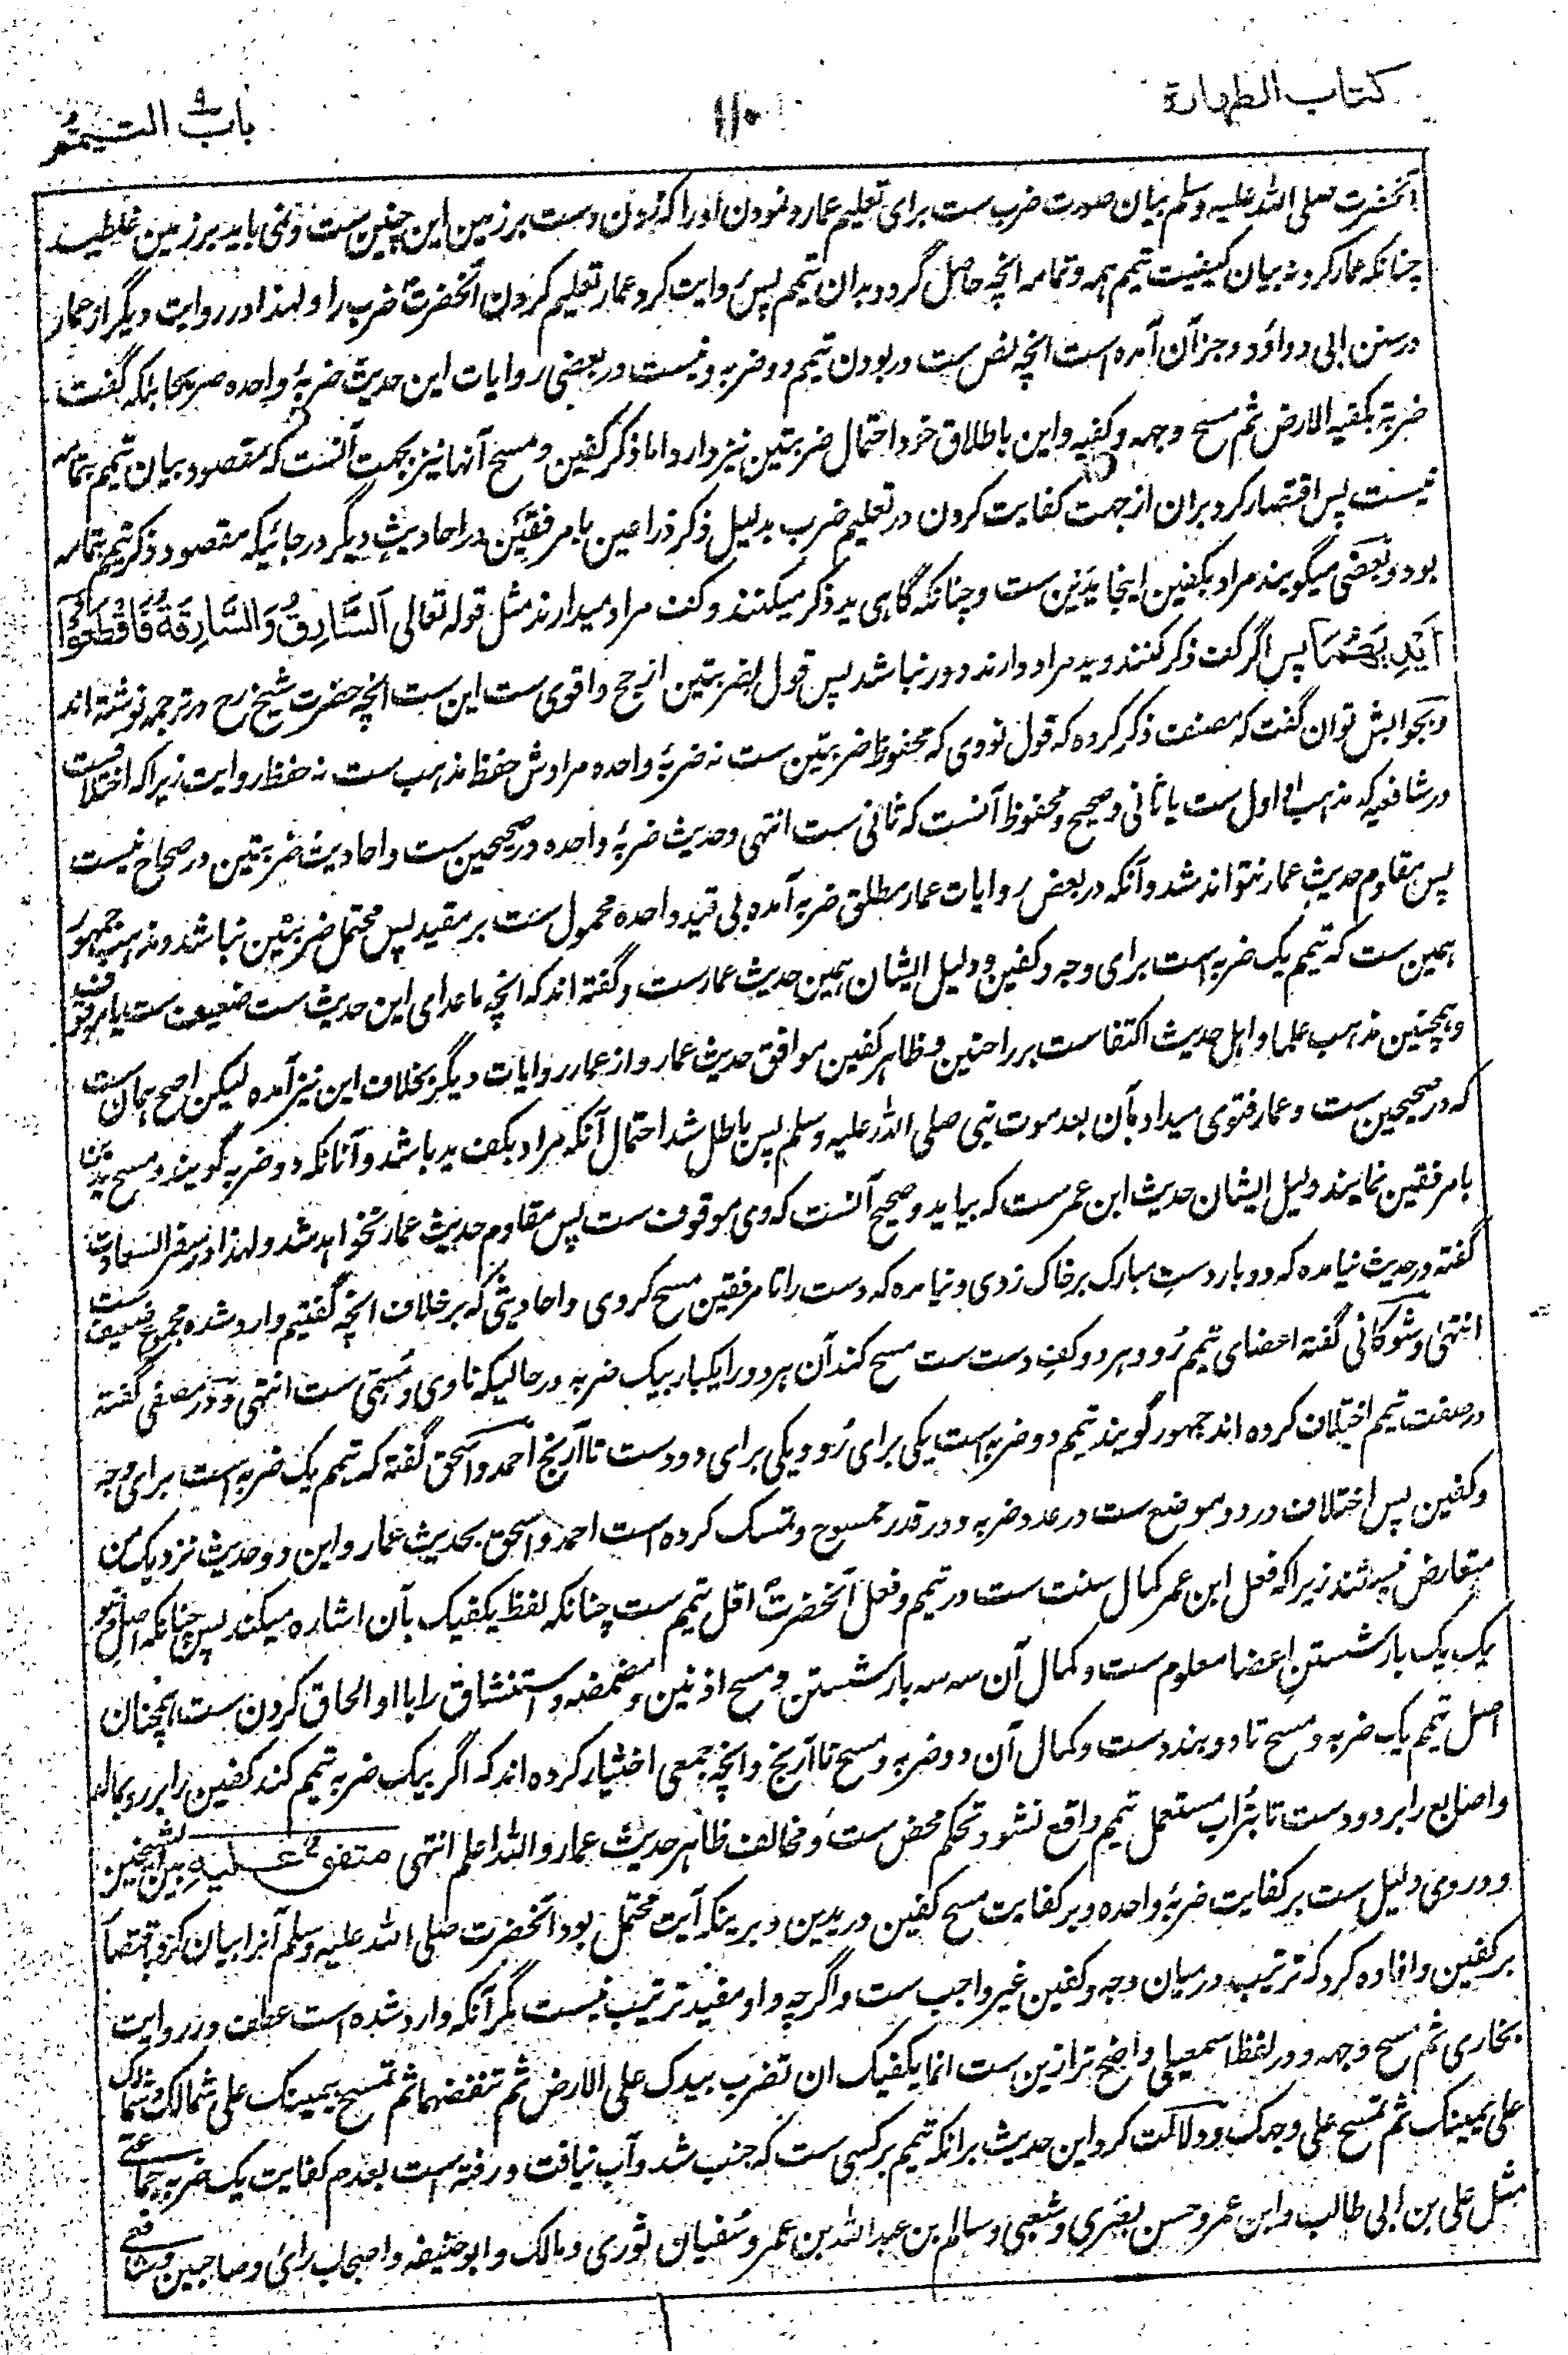 کتاب الطهارة
۱۱۰
باب التیمم
آنحضرت صلی الله علیه وسلم بیان صورت ضرب ست برای تعلیم عمار و نمودن اورا که زدن دست بر زمین این چنین ست و نمی باید بر زمین غلطید
چنانکه عمار کرد نه بیان کیفیت تیمم همه و تمامه انچه حاصل گردد بدان تیمم پس روایت کرد عمار تعلیم کردن آنحضرت ضرب را و لهذا در روایت دیگر از عمار
در سنن ابی داؤد و جز آن آمده است انچه نص ست در بودن تیمم دو ضربه و نیست در بعضی روایات این حدیث ضربهٔ واحده صریحا بلکه گفت
ضربة بکفیه الارض ثم مسح وجهه وکفیه و این باطلاق خود احتمال ضربتین نیز دارد اما ذکر کفین و مسح آنها نیز بجهت آنست که مقصود بیان تیمم بتمامه
نیست پس اقتصار کرد بران از جهت کفایت کردن در تعلیم ضرب بدلیل ذکر ذراعین با مرفقین در احادیث دیگر در جائیکه مقصود ذکر تیمم بتمامه
بود و بعضی میگویند مراد بکفین اینجا یدین ست و چنانکه گاهی ید ذکر میکنند و کف مراد میدارند مثل قوله تعالی اَلسَّارِقُ وَالسَّارِقَةُ فَاقْطَعُوْآ
اَیْدِیَهُمَا پس اگر کف ذکر کنند و ید مراد دارند دور نباشد پس قول بضربتین ارجح و اقوی ست این ست انچه حضرت شیخ رح در ترجمه نوشته اند
و بجوابش توان گفت که مصنف ذکر کرده که قول نووی که محفوظ ضربتین ست نه ضربهٔ واحده مرادش حفظ مذهب ست نه حفظ روایت زیرا که اختلافست
در شافعیه که مذهب او اول ست یا ثانی و صحیح و محفوظ آنست که ثانی ست انتهی و حدیث ضربهٔ واحده در صحیحین ست و احادیث ضربتین در صحاح نیست
پس مقاوم حدیث عمار نتواند شد و آنکه در بعض روایات عمار مطلق ضربه آمده بی قید واحده محمول ست بر مقید پس محتمل ضربتین نباشد و مذهب جمهور
همین ست که تیمم یک ضربه است برای وجه و کفین و دلیل ایشان همین حدیث عمار ست و گفته اند که انچه ماعدای این حدیث ست ضعیف ست یا موقوف
و همچنین مذهب علما و اهل حدیث اکتفاست بر راحتین و ظاهر کفین موافق حدیث عمار و از عمار روایات دیگر بخلاف این نیز آمده لیکن اصح همان ست
که در صحیحین ست و عمار فتوی میداد بآن بعد موت نبی صلی الله علیه وسلم پس باطل شد احتمال آنکه مراد بکف ید باشد و آنانکه دو ضربه گویند و مسح یدین
با مرفقین نمایند دلیل ایشان حدیث ابن عمر ست که بیاید و صحیح آنست که وی موقوف ست پس مقاوم حدیث عمار نخواهد شد و لهذا در سفر السعادت
گفته و در حدیث نیامده که دو بار دست مبارک بر خاک زدی و نیامده که دست را تا مرفقین مسح کردی و احادیثی که بر خلاف انچه گفتیم وارد شده مجموع ضعیف ست
انتهی و شوکانی گفته اعضای تیمم رُو و هر دو کف دست ست مسح کند آن هر دو را یکبار بیک ضربه در حالیکه ناوی و مسمّی ست انتهی و در مصفی گفته
در صفت تیمم اختلاف کرده اند جمهور گویند تیمم دو ضربه است یکی برای رُو و یکی برای دو دست تا آرنج و احمد و اسحق گفته که تیمم یک ضربه است برای وجه
و کفین پس اختلاف در دو موضع ست در عدد ضربه و در قدر ممسوح و تمسک کرده است احمد و اسحق بحدیث عمار و این دو حدیث نزدیک من
متعارض نیستند زیرا که فعل ابن عمر کمال سنت ست در تیمم و فعل آنحضرت اقل تیمم ست چنانکه لفظ یکفیک بآن اشاره میکند پس چنانکه اصل وضو
یک یک بار شستن اعضا معلوم ست و کمال آن سه سه بار شستن و مسح اذنین و مضمضه و استنشاق را با او الحاق کردن ست همچنان
اصل تیمم یک ضربه و مسح تا دو بند دست و کمال آن دو ضربه و مسح تا آرنج و انچه جمعی اختیار کرده اند که اگر بیک ضربه تیمم کند کفین را بر رو بمالد
و اصابع را بر دو دست تا بتُراب مستعمل تیمم واقع نشود تحکم محض ست و مخالف ظاهر حدیث عمار والله اعلم انتهی متفق علیه بین الشیخین
و در وی دلیل ست بر کفایت ضربهٔ واحده و بر کفایت مسح کفین در یدین و برینکه آیت محتمل بود آنحضرت صلی الله علیه وسلم آنرا بیان کرد باقتصار
بر کفین و افاده کرد که ترتیب در میان وجه و کفین غیر واجب ست و اگرچه واو مفید ترتیب نیست مگر آنکه وارد شده است عطف در روایت
بخاری ثم مسح وجهه و در لفظ اسمعیلی واضح تر ازین ست انما یکفیک ان تضرب بیدک علی الارض ثم تنفضهما ثم تمسح بیمینک علی شمالک و شمالک
علی یمینک ثم تمسح علی وجهک و دلالت کرد این حدیث برانکه تیمم بر کسی ست که جنب شد و آب نیافت و رفته است بعدم کفایت یک ضربه جماعتی
مثل علی بن ابی طالب و ابن عمر و حسن بصری و شعبی و سالم بن عبدالله بن عمر و سُفیان ثوری و مالک و ابوحنیفه و اصحاب رائ و صاحبین و شافعی